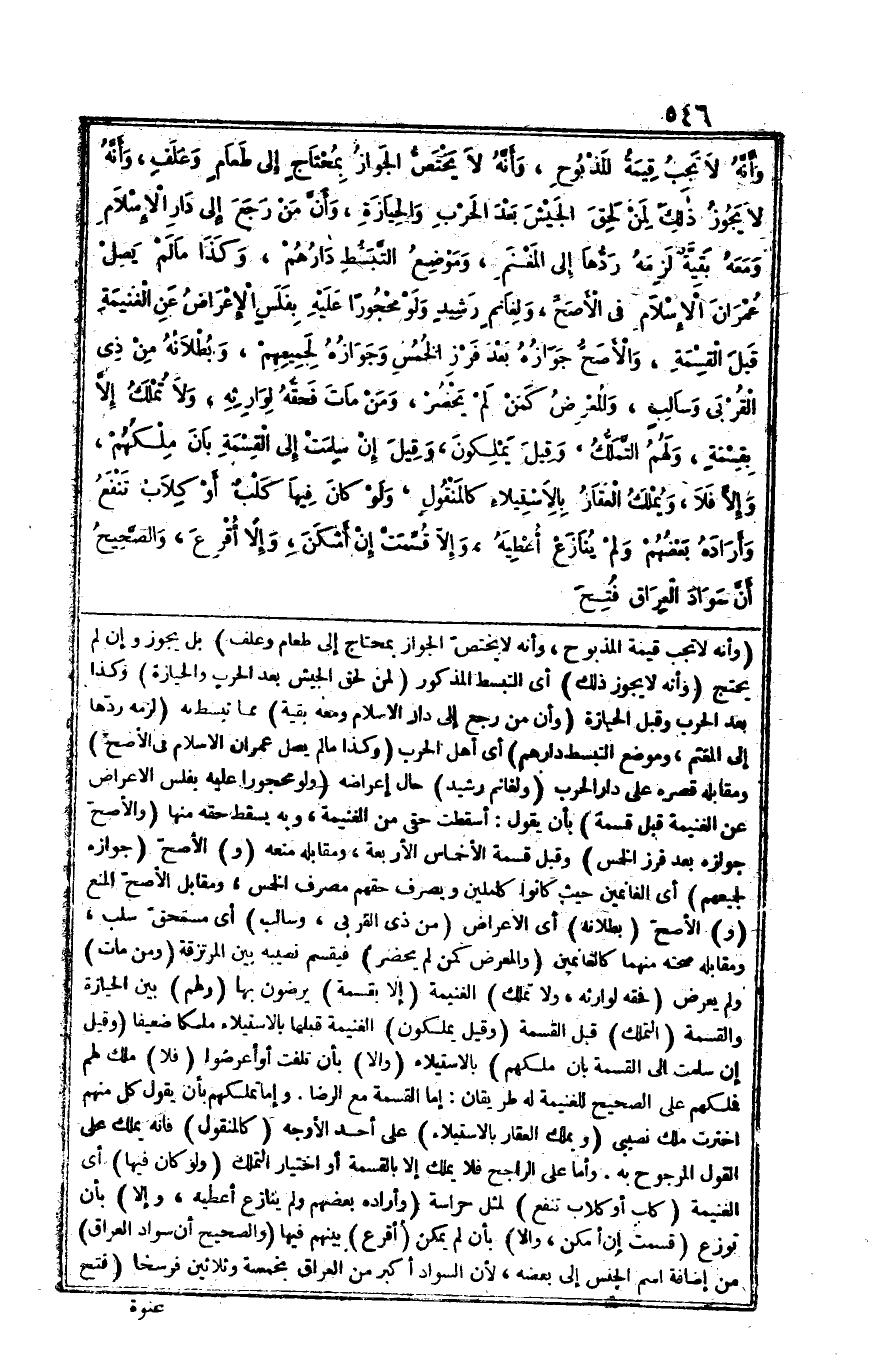 ٥٤٦
وَأَنَّهُ لاَ تَجِبُ قِيمَةُ المَذْبُوحِ ، وَأَنَّهُ لاَ يَخْتَصُّ الجَوَازُ بِمُحْتَاجٍ إِلى طَعَامٍ وَعَلَفٍ ، وَأَنَّهُ
لاَ يَجُوزُ ذٰلِكَ لِمَنْ لَحِقَ الجَيْشَ بَعْدَ الحَرْبِ وَالحِيَازَةِ ، وَأَنَّ مَنْ رَجَعَ إِلى دَارِ الْإِسْلَامِ
وَمَعَهُ بَقِيَّةٌ لَزِمَهُ رَدُّهَا إِلى المَغْنَمِ ، وَمَوْضِعُ التَّبَسُّطِ دَارُهُمْ ، وَكَذَا مَالَمْ يَصِلْ
عُمْرَانَ الْإِسْلَامِ فى الْأَصَحِّ ، وَلِغَانِمٍ رَشِيدٍ وَلَوْ مَحْجُورًا عَلَيْهِ بِفَلَسٍ الْإِعْرَاضُ عَنِ الْغَنِيمَةِ
قَبْلَ الْقِسْمَةِ ، وَالْأَصَحُّ جَوَازُهُ بَعْدَ فَرْزِ الخُمُسِ وَجَوَازُهُ لِجَمِيعِهِمْ ، وَبُطْلَانُهُ مِنْ ذِى
الْقُرْبَى وَسَالِبٍ ، وَالمُعْرِضُ كَمَنْ لَمْ يَحْضُرْ ، وَمَنْ مَاتَ فَحَقُّهُ لِوَارِثِهِ ، وَلاَ تُمْلَكُ إِلاَّ
بِقِسْمَةٍ ، وَلَهُمُ التَّمَلُّكُ ، وَقِيلَ يَمْلِكُونَ ، وَقِيلَ إِنْ سَلِمَتْ إِلى الْقِسْمَةِ بَانَ مِلْكُهُمْ ،
وَإِلاَّ فَلاَ ، وَيُمْلَكُ الْعَقَارُ بِالِاسْتِيلاَءِ كالمَنْقُولِ ، وَلَوْ كانَ فِيهَا كَلْبٌ أَوْ كِلاَبٌ تَنْفَعُ
وَأَرَادَهُ بَعْضُهُمْ وَلَمْ يُنَازَعْ أُعْطِيَهُ ، وَإِلاَّ قُسِّمَتْ إِنْ أَمْكَنَ ، وَإِلَّا أُقْرِعَ ، وَالصَّحِيحُ
أَنَّ سَوَادَ الْعِرَاقِ فُتِحَ
(وأنه لاتجب قيمة المذبوح ، وأنه لايختصّ الجواز بمحتاج إلى طعام وعلف) بل يجوز وإن لم
يحتج (وأنه لايجوز ذلك) أى التبسط المذكور (لمن لحق الجيش بعد الحرب والحيازة) وكذا
بعد الحرب وقبل الحيازة (وأن من رجع إلى دار الاسلام ومعه بقية) مما تبسط به (لزمه ردّها
إلى المغنم ، وموضع التبسط دارهم) أى أهل الحرب (وكذا مالم يصل عمران الاسلام فى الأصحّ)
ومقابله قصره على دار الحرب (ولغانم رشيد) حال إعراضه (ولو محجورا عليه بفلس الاعراض
عن الغنيمة قبل قسمة) بأن يقول : أسقطت حقى من الغنيمة ، وبه يسقط حقه منها (والأصحّ
جوازه بعد فرز الخمس) وقبل قسمة الأخماس الأربعة ، ومقابله منعه (و) الأصحّ (جوازه
لجميعهم) أى الغانمين حيث كانوا كاملين ويصرف حقهم مصرف الخمس ، ومقابل الأصحّ المنع
(و) الأصحّ (بطلانه) أى الاعراض (من ذى القربى ، وسالب) أى مستحقّ سلب ،
ومقابله صحته منهما كالغانمين (والمعرض كمن لم يحضر) فيقسم نصيبه بين المرتزقة (ومن مات)
ولم يعرض (فحقه لوارثه ، ولا تملك) الغنيمة (إلا بقسمة) يرضون بها (ولهم) بين الحيازة
والقسمة (التملك) قبل القسمة (وقيل يملكون) الغنيمة قبلها بالاستيلاء ملكا ضعيفا (وقيل
إن سلمت الى القسمة بان ملكهم) بالاستيلاء (والا) بأن تلفت أو أعرضوا (فلا) ملك لهم
فملكهم على الصحيح للغنيمة له طريقان : إما القسمة مع الرضا . وإما تملكهم بأن يقول كل منهم
اخترت ملك نصيبى (ويملك العقار بالاستيلاء) على أحد الأوجه (كالمنقول) فانه يملك على
القول المرجوح به . وأما على الراجح فلا يملك إلا بالقسمة أو اختيار التملك (ولو كان فيها) أى
الغنيمة (كلب أو كلاب تنفع) لمثل حراسة (وأراده بعضهم ولم ينازع أعطيه ، وإلا) بأن
توزع (قسمت إن أمكن ، والا) بأن لم يمكن (أقرع) بينهم فيها (والصحيح أن سواد العراق)
من إضافة اسم الجنس إلى بعضه ، لأن السواد أكبر من العراق بخمسة وثلاثين فرسخا (فتح
عنوة